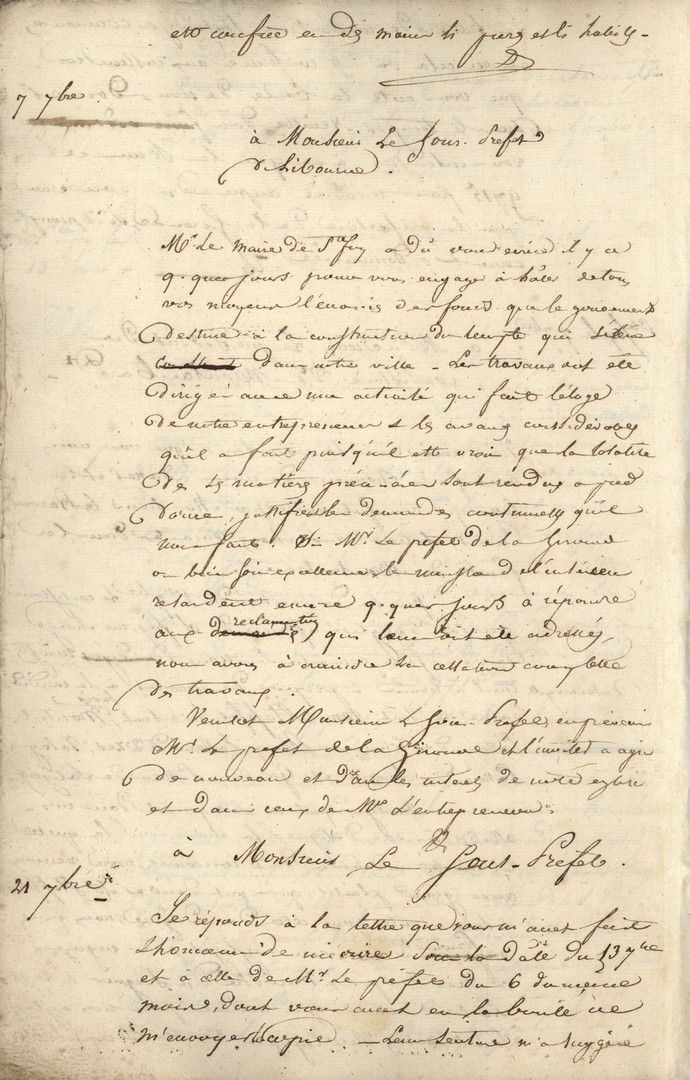 est confiée en des mains si pures et si habiles -
7 7bre.
à Monsieur Le Sous-Préfet
de Libourne.
Mr Le maire de Ste foy a dû vous écrire il y a
q. ques jours pour vous engager à hâter de tous
vos moyens l'envoi des fonds que le gouvernemt
destine à la construction du temple qui
dans notre ville - Les travaux ont été
dirigés avec une activité qui fait l'éloge
de notre entrepreneur & les avances considérables
qu'il a fait puisqu'il est vrai que la totalité
des matières sont rendus a pied
d'œuvre, justifient les demandes continuelles qu'il
nous fait. Si Mr. Le préfet de la Gironde
ou bien son excellence le ministre de l'intérieur
retardent encore q. ques jours à répondre
aux reclamations qui leur ont été adressés,
nous avons à craindre la cessation complette
des travaux.
Veuillez Monsieur Le Sous-Préfet, en prévenir
Mr. Le préfet de la Gironde et l'inviter a agir
de nouveau et dans les intérêts de notre église
et dans ceux de Mr L'entrepreneur.
à Monsieur Le Sous-Préfet.
21 7bre
Je réponds à la lettre que vous m'avez fait
L'honneur de m'écrire sous la date du 13 7bre
et à celle de Mr. Le préfet du 6 du même
mois, dont vous avez eu la bonté de
m'envoyer la copie - Leur lecture m'a suggéré